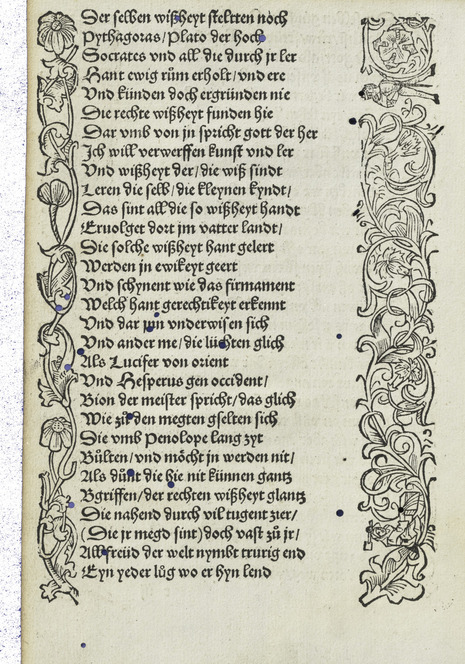 Der selben wißheyt stelten noch
Pythagoras/Plato der hoch
Socrates vnd all die durch jr ler
Hant ewig rům erholt/vnd ere
Vnd künden doch ergründen nie
Die rechte wißheyt funden hie
Dar vmb von jn spricht gott der her
Ich will verwerffen kunst vnd ler
Vnd wißheyt der/die wiß sindt
Leren die selb/die kleynen kyndt/
Das sint all die so wißheyt handt
Eruolget dort jm vatter landt/
Die solche wißheyt hant gelert
Werden jn ewikeyt geert
Vnd schynent wie das firmament
Welch hant gerechtikeyt erkennt
Vnd dar jnn vnderwisen sich
Vnd ander me/die lüchten glich
Als Lucifer von orient
Vnd Hesperus gen occident/
Bion der meister spricht/das glich
Wie zů den megten gselten sich
Die vmb Penolope lang zyt
Bůlten/vnd möcht jn werden nit/
Als důnt die hie nit künnen gantz
Bgriffen/der rechten wißheyt glantz
Die nahend durch vil tugent zier/
(Die jr megd sint) doch vast zů jr/
All freüd der welt nymbt trurig end
Eyn yeder lůg wo er hyn lend